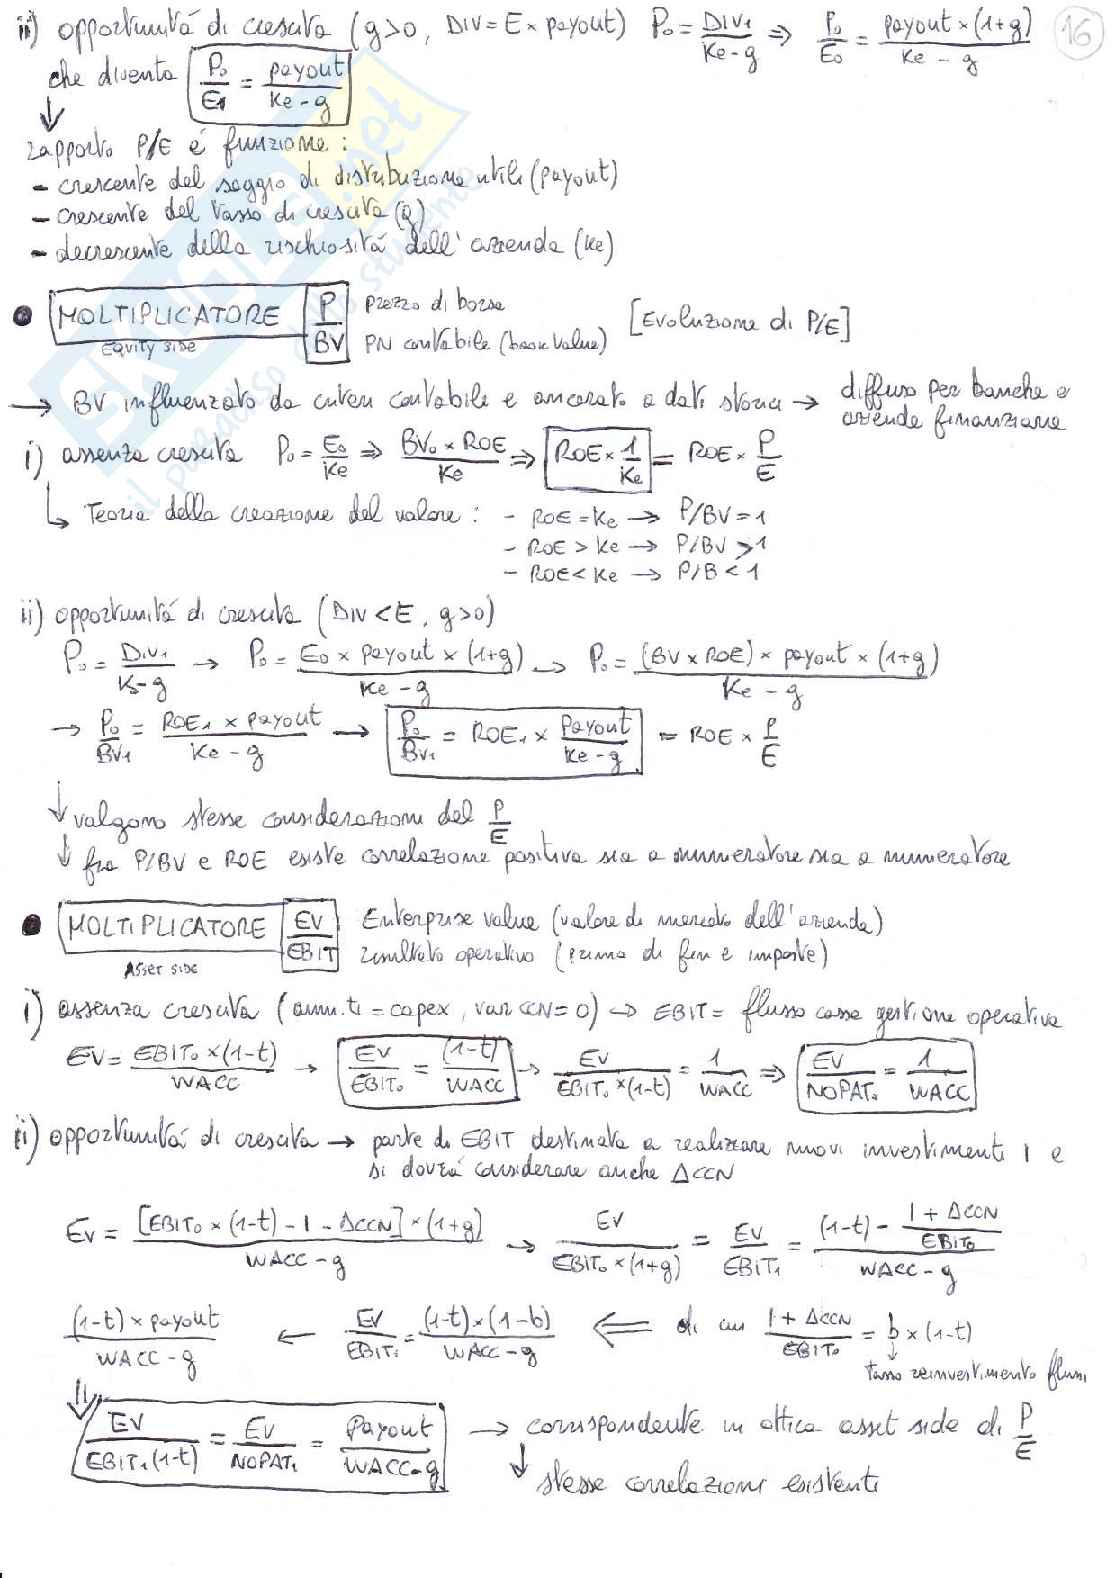 ii) opportunità di crescita (g>0, DIV=E×payout) P₀ = DIV₁/Ke-g ⇒ P₀/E₀ = payout×(1+g)/Ke-g 16
che diventa P₀/E1 = payout/Ke-g
rapporto P/E é funzione:
- crescente del saggio di distribuzione utili (payout)
- crescente del tasso di crescita (g)
- decrescente della rischiosità dell'azienda (Ke)
• MOLTIPLICATORE P/BV Prezzo di borsa [Evoluzione di P/E]
Equity side PN contabile (book value)
→ BV influenzato da criteri contabili e ancorato a dati storici → diffuso per banche e
aziende finanziarie
i) assenza crescita P₀ = E₀/Ke ⇒ BV₀×ROE/Ke ⇒ ROE×1/Ke = ROE×P/E
↳ Teoria della creazione del valore: - ROE=Ke → P/BV=1
- ROE>Ke → P/BV>1
- ROE<Ke → P/B<1
ii) opportunità di crescita (DIV<E, g>0)
P₀ = DIV₁/K-g → P₀ = E₀×payout×(1+g)/Ke-g → P₀ = (BV×ROE)×payout×(1+g)/Ke-g
→ P₀/BV₁ = ROE₁×payout/Ke-g → P₀/BV₁ = ROE₁×payout/Ke-g = ROE×P/E
↓ valgono stesse considerazioni del P/E
↓ fra P/BV e ROE esiste correlazione positiva sia a numeratore sia a numeratore
• MOLTIPLICATORE EV/EBIT Enterprise value (valore di mercato dell'azienda)
Asset side risultato operativo (prima di fin e imposte)
i) assenza crescita (amm.ti=capex, var CCN=0) → EBIT = flusso cassa gestione operativa
EV = EBIT₀×(1-t)/WACC → EV/EBIT₀ = (1-t)/WACC → EV/EBIT₀×(1-t) = 1/WACC ⇒ EV/NOPAT₀ = 1/WACC
ii) opportunità di crescita → parte di EBIT destinata a realizzare nuovi investimenti I e
si dovrà considerare anche ΔCCN
EV = [EBIT₀×(1-t)-I-ΔCCN]×(1+g)/WACC-g → EV/EBIT₀×(1+g) = EV/EBIT₁ = (1-t)-I+ΔCCN/EBIT₀/WACC-g
(1-t)×payout/WACC-g ← EV/EBIT₁ = (1-t)×(1-b)/WACC-g ⇐ di cui I+ΔCCN/EBIT₀ = b×(1-t)
tasso reinvestimento flussi
EV/EBIT₁(1-t) = EV/NOPAT₁ = Payout/WACC-g → corrispondente in ottica asset side di P/E
↓ stesse correlazioni esistenti